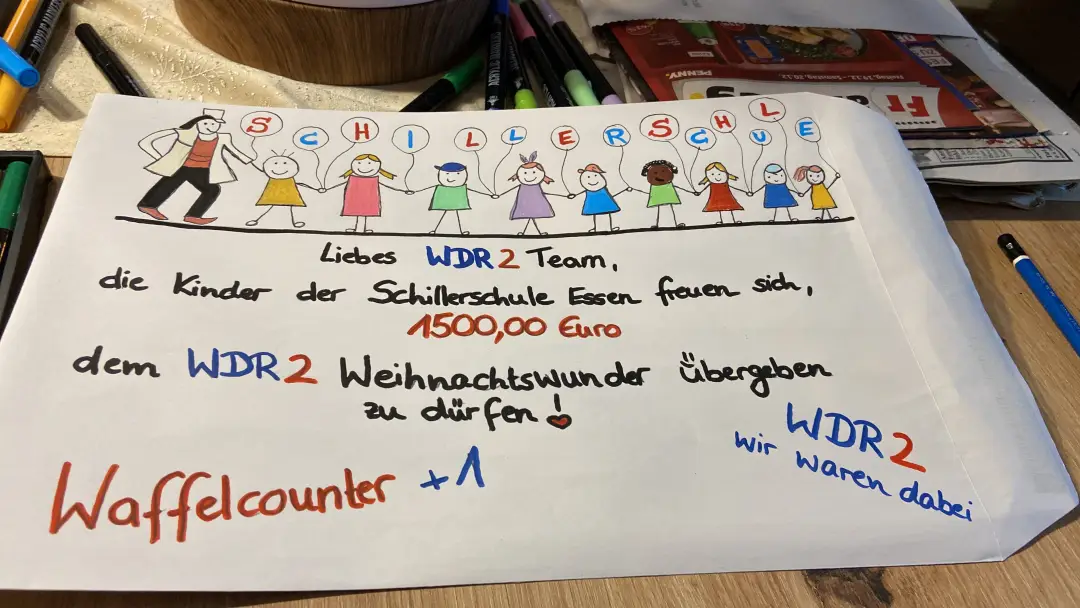 SCHILLERSCHULE
Liebes WDR2 Team,
die Kinder der Schillerschule Essen freuen sich,
1500,00 Euro
dem WDR2 Weihnachtswunder übergeben
zu dürfen!
WDR2
wir waren dabei
Waffelcounter +1
PENNY.